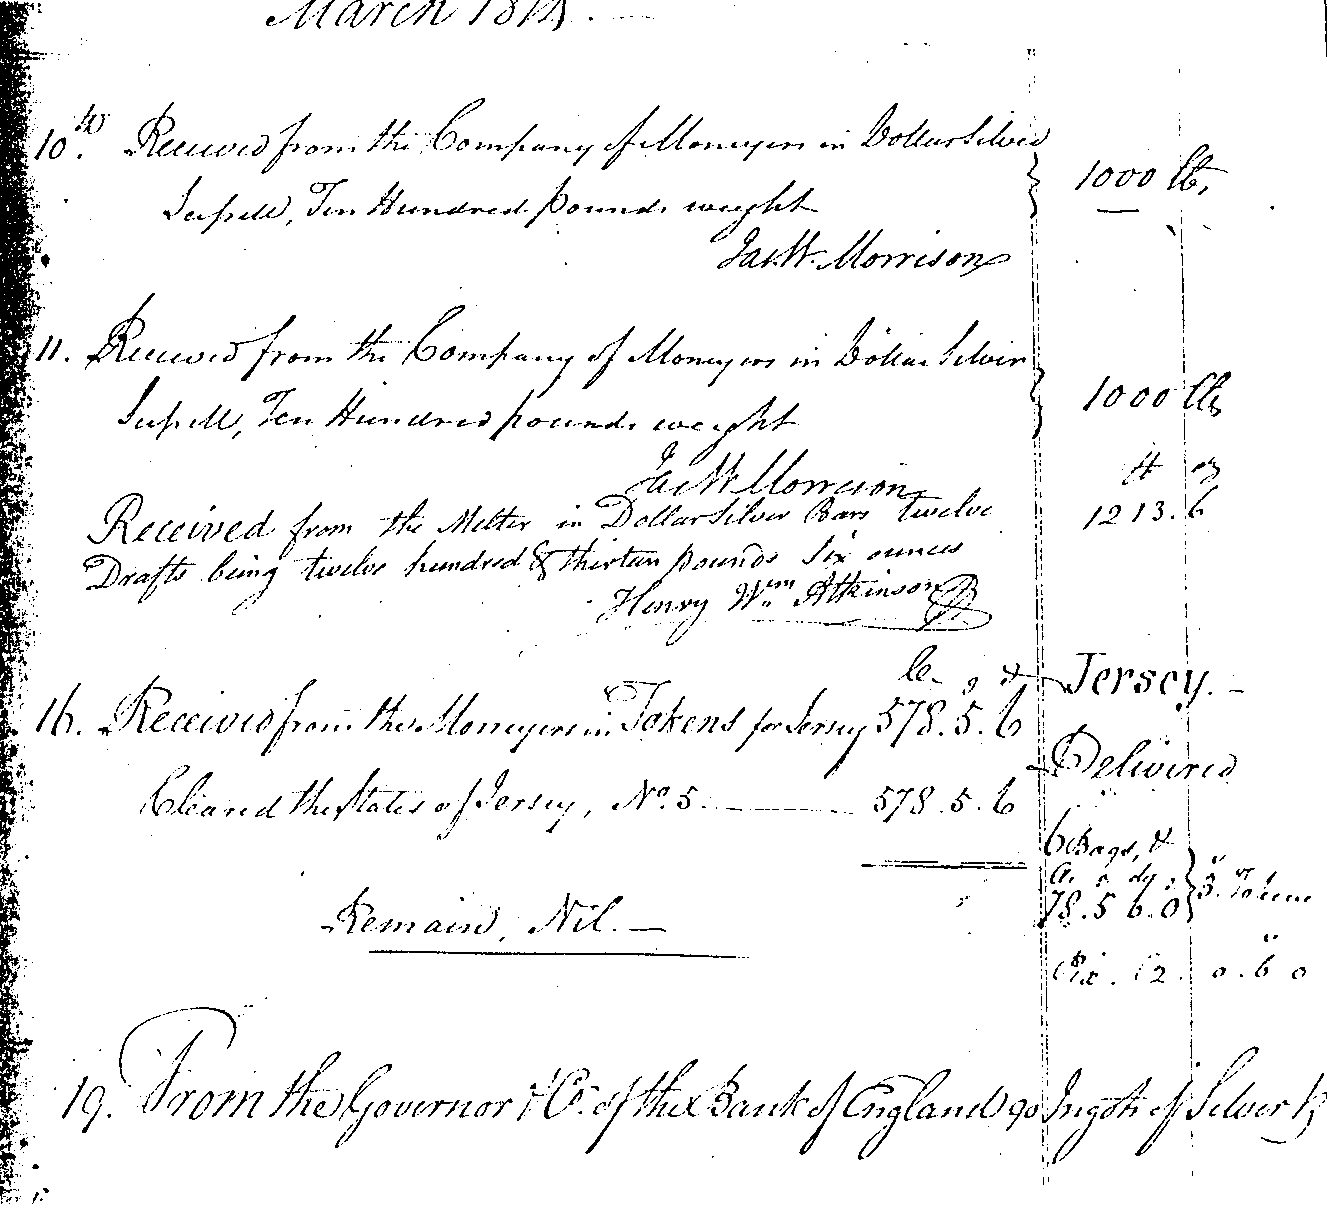 March 181
10th Received from the Company of Moneyers in Dollar Silver
Scissell, Ten Hundred pounds weight
1000 lbs,
Jas. W. Morrison
11. Received from the Company of Moneyers in Dollar Silver
Scissell, Ten Hundred pounds weight
1000 lbs
Jas W Morrison
lb oz
Received from the Melter in Dollar Silver Bars twelve
1213.6
Drafts being twelve hundred & thirteen pounds six ounces
Henry Wm Atkinson
Jersey.—
16. Received from the Moneyers in Tokens for Jersey 578.5.6
Delivered
Cleared the States of Jersey, No. 5 — 578.5.6
6 Bags, &
78.5 6.0 } 3. Tokens
Remain, Nil.—
Pix. 0.6 0
19. From the Governor & Co. of the Bank of England 90 Ingots of Silver